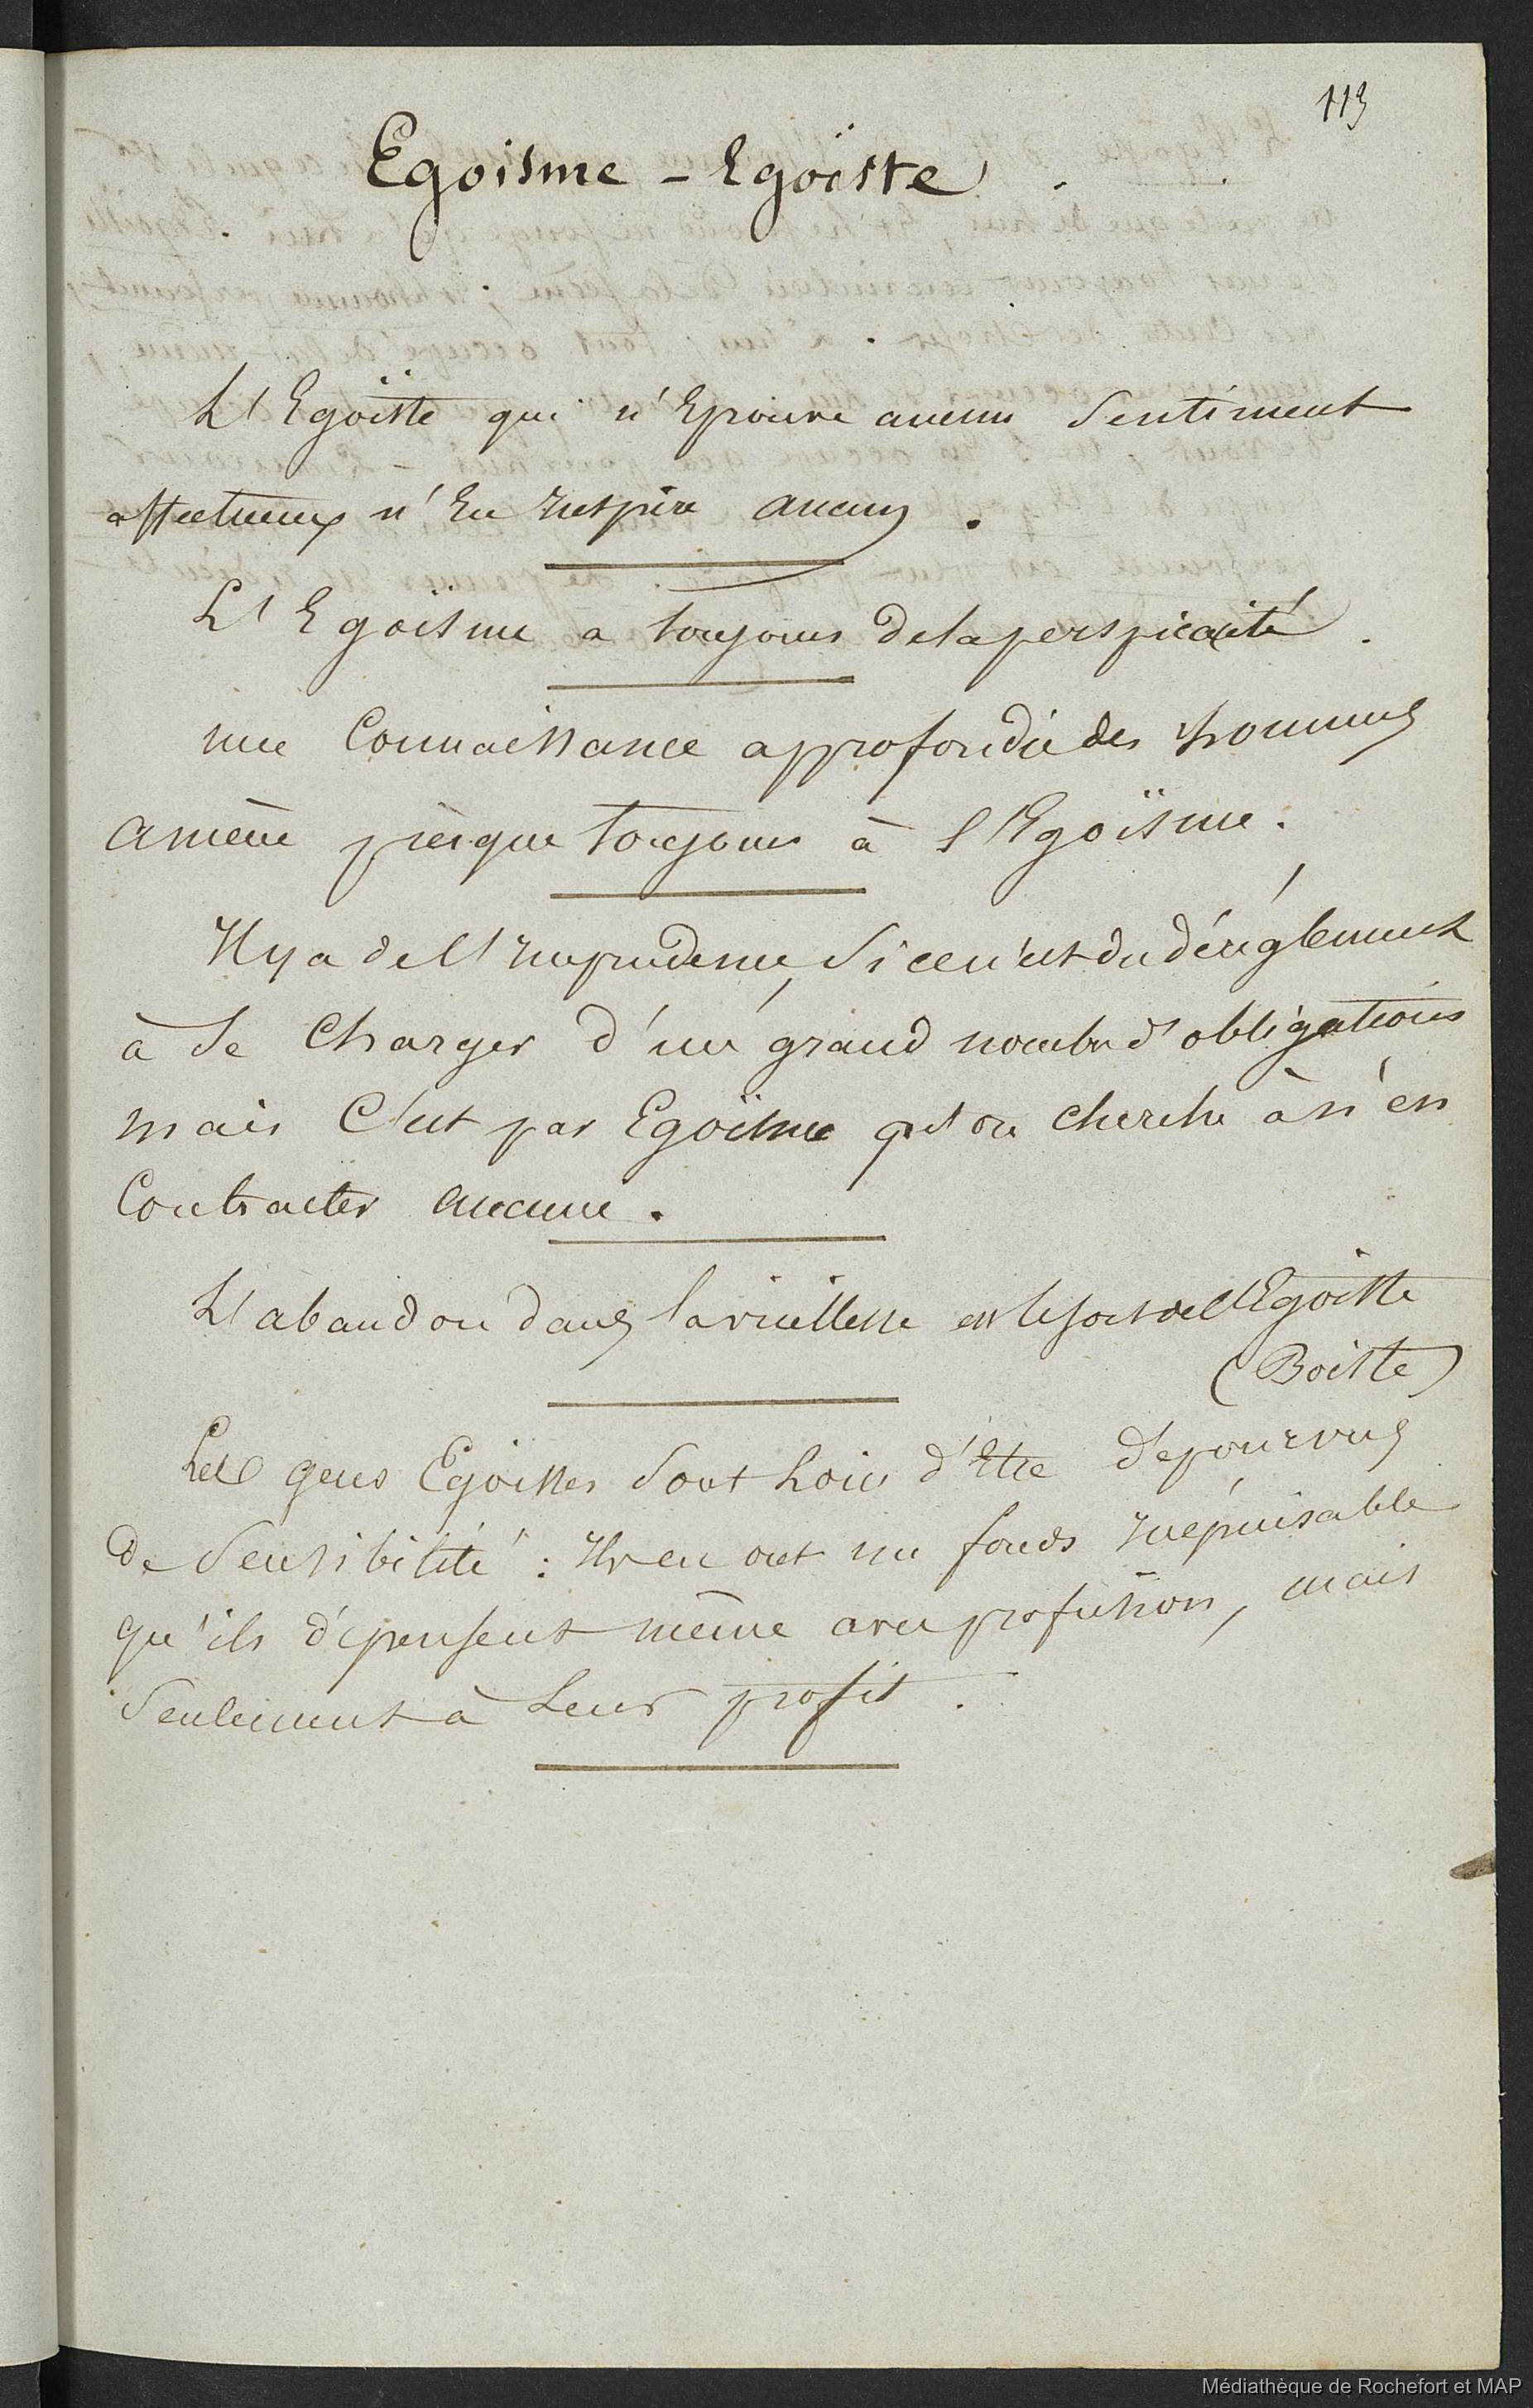 113
Egoïsme - Egoïste.
L'Egoïste qui n'Eprouve aucun Sentiment
affectueux n'En Inspire aucun.
L'Egoïsme a toujours de la perspicacité.
une Connaissance approfondie des hommes
amène prèsque toujours à l'Egoïsme.
Il y a de l'Imprudence, Si ce n'est du déréglement
à Se Charger d'un grand nombre d'obligations
mais C'est par Egoïsme qu'on cherche à n'en
Contracter aucune.
L'abandon dans la vieillesse est le sort de l'Egoïste
(Boiste)
Les gens Egoïstes Sont Loin d'Etre dépourvus
de Sensibilité : Ils en ont un fonds Inépuisable
qu'ils dépensent même avec profusion, mais
Seulement à Leur profit.
Médiathèque de Rochefort et MAP